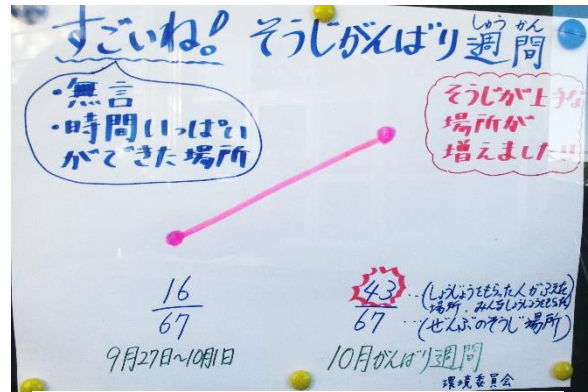 すごいね! そうじがんばり週間
しゅう かん
・無言
・時間いっぱい
ができた場所
そうじが上手な
場所が
増えました!!
16
67
43
67
(しょうじょうをもらった人がふえた
場所、みんなしょうじょうをもらった)
(ぜんぶのそうじ場所)
9月27日〜10月1日
10月がんばり週間
環境委員会